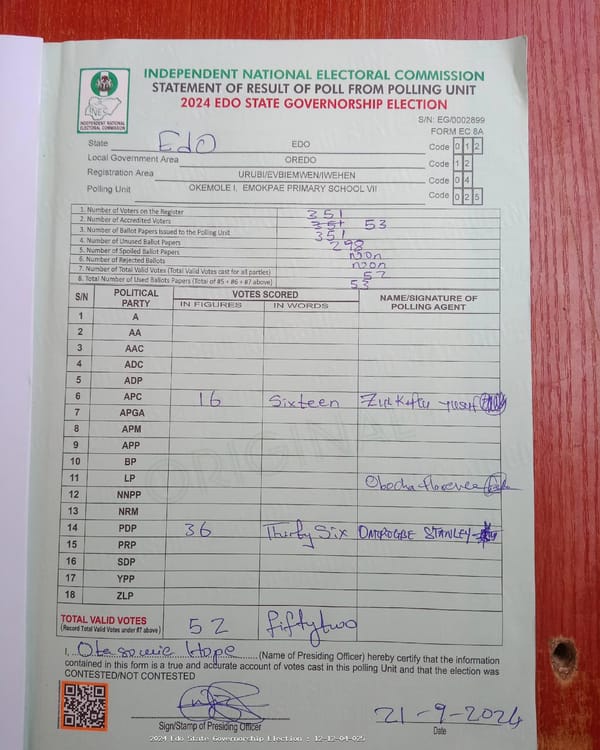 INDEPENDENT NATIONAL ELECTORAL COMMISSION
STATEMENT OF RESULT OF POLL FROM POLLING UNIT
2024 EDO STATE GOVERNORSHIP ELECTION
INEC
INDEPENDENT NATIONAL ELECTORAL COMMISSION
S/N: EG/0002899
FORM EC 8A
State Edo EDO Code 0 1 2
Local Government Area OREDO Code 1 2
Registration Area URUBI/EVBIEMWEN/IWEHEN Code 0 4
Polling Unit OKEMOLE I, EMOKPAE PRIMARY SCHOOL VII Code 0 2 5
1. Number of Voters on the Register 351
2. Number of Accredited Voters 351 53
3. Number of Ballot Papers Issued to the Polling Unit 351
4. Number of Unused Ballot Papers 298
5. Number of Spoiled Ballot Papers noon
6. Number of Rejected Ballots noon
7. Number of Total Valid Votes (Total Valid Votes cast for all parties) 52
8. Total Number of Used Ballots Papers (Total of #5 + #6 + #7 above) 53
S/N POLITICAL PARTY VOTES SCORED NAME/SIGNATURE OF POLLING AGENT
IN FIGURES IN WORDS
1 A
2 AA
3 AAC
4 ADC
5 ADP
6 APC 16 Sixteen
7 APGA
8 APM
9 APP
10 BP
11 LP Florence
12 NNPP
13 NRM
14 PDP 36 Thirty Six STANLEY
15 PRP
16 SDP
17 YPP
18 ZLP
ORIGINAL
TOTAL VALID VOTES 52 fiftytwo
(Record Total Valid Votes under #7 above)
I, Hope (Name of Presiding Officer) hereby certify that the information
contained in this form is a true and accurate account of votes cast in this polling Unit and that the election was
CONTESTED/NOT CONTESTED
Sign/Stamp of Presiding Officer
21-9-2024
Date
2024 Edo State Governorship Election : 12-12-04-025